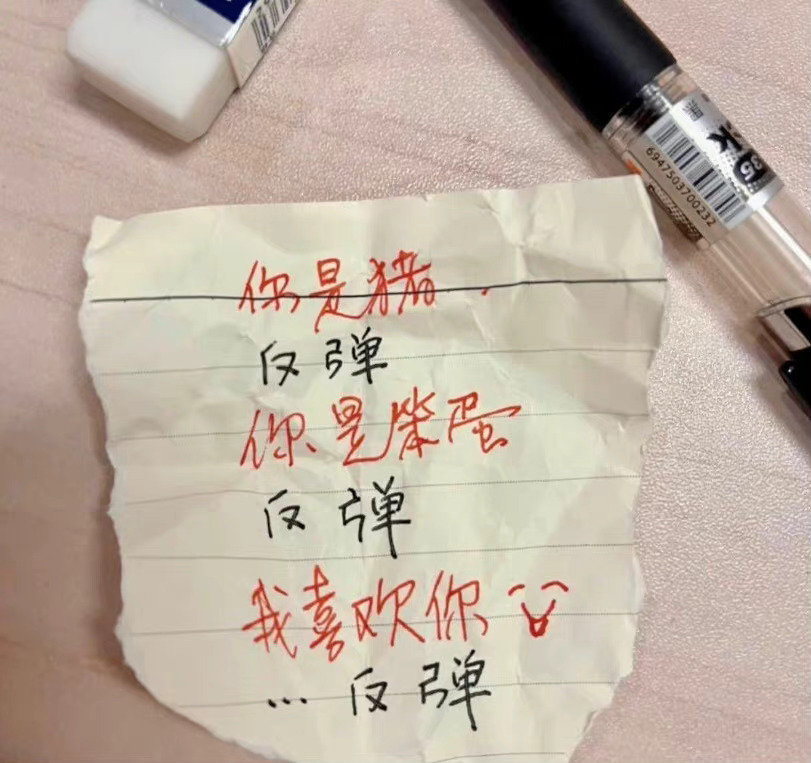 你是猪.
反弹
你是笨蛋
反弹
我喜欢你
…反弹
6947503700232
35